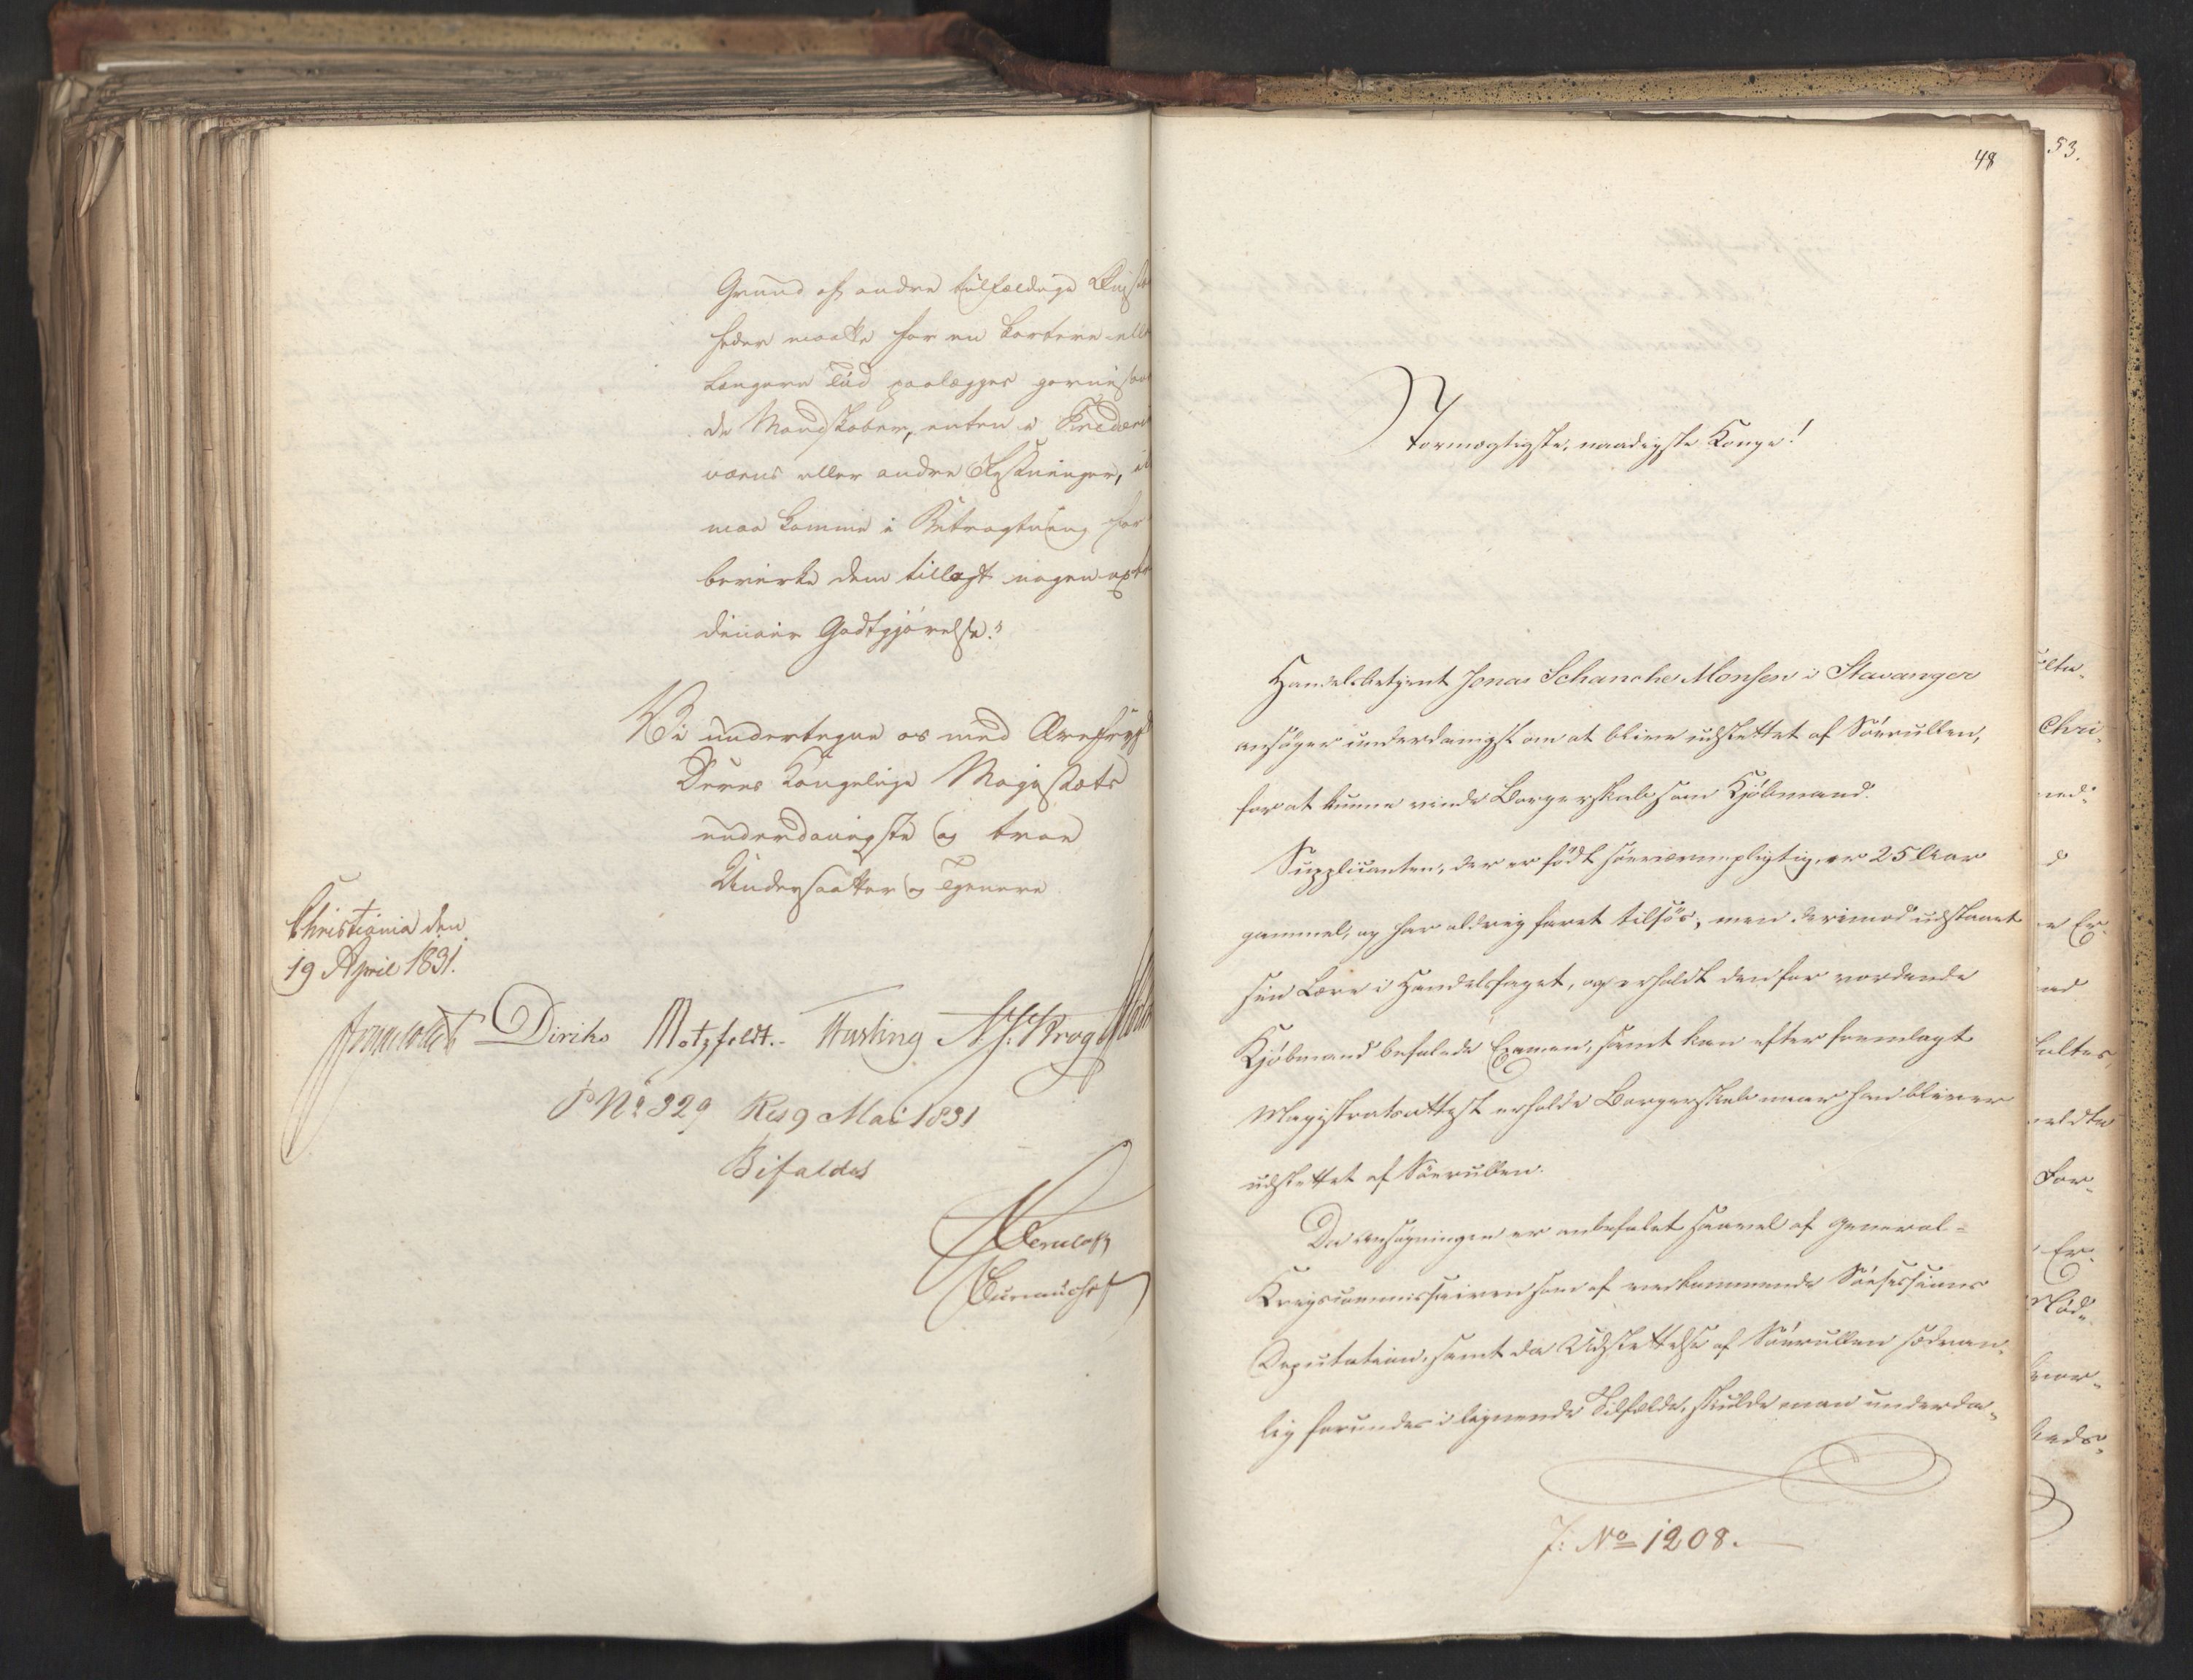 Grund af andre tilfældige Leilig
heder maatte for en kortere elle
længere Tid paalægges garniso
de Mandskaber, enten i
værns eller andre Sysslninger, ei
maa komme i Betragtning for
bevirke dem tillagt nogen extr
dinair Godtgjörelse."
Vi undertegne os med Ærefrygt
Deres Kongelige Majestæts
underdanigste og troe
Undersaatter og Tjenere
Christiania den
19 April 1831.
Diriks Motzfeldt. Fasting N. J. Krog
P No 329 Res 9 Mai 1831
Bifaldes
48
Stormægtigste, naadigste Konge!
Handelsbetjent Jonas Schanche Monsen i Stavanger
ansöger underdanigst om at blive udslettet af Sörullen,
for at kunne vinde Borgerskab som Kjöbmand.
Supplicanten, der er födt söeværnepligtig, er 25 Aar
gammel, og har aldrig faret tilsös, men derimod udstaaet
sin Lære i Handelsfaget, og erholdt den for vordende
Kjöbmænd befalede Examen, samt kan efter fremlagt
Magistratsattest erholde Borgerskab naar han bliver
udslettet af Sörullen.
Da Ansögningen er anbefalet saavel af General-
Krigscommissairen som af vedkommende Söesessions
Deputation, samt da Udslettelse af Sörullen sædvan-
lig forundes i lignende Tilfælde, skulde man underda-
J: No 1208.
53.
Chri-
ned-
d
e Er-
nd
eldte
For-
Er-
Nöd-
heds-